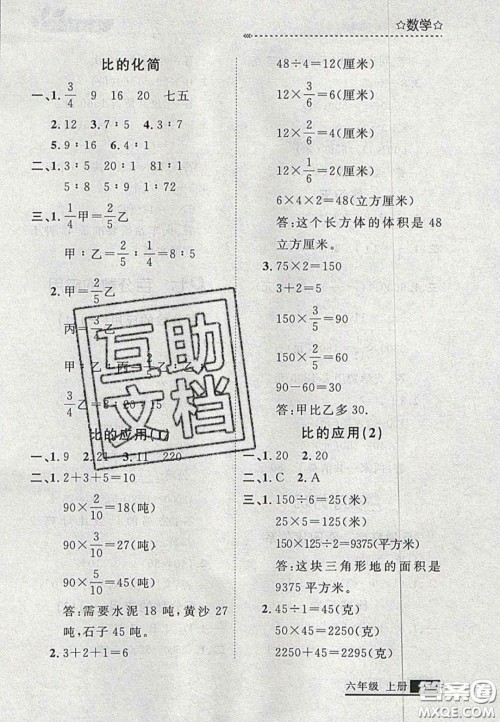 ☆数学☆
比的化简
一、1. 3/4 9 16 20 七五
2. 12 3. 7∶5 4. 3∶7
5. 9∶16 6. 8∶9
二、1. 3∶5 20∶1 81∶1
5∶8 5∶9 5∶2
三、1. 1/4甲=2/5乙
甲∶乙=2/5∶1/4=8∶5
2. 甲=2/5乙
丙=
甲∶乙∶丙=
3/4=8∶20∶15
比的应用(1)
一、1. 9 2. 21 3. 11 220
二、1. 2+3+5=10
90×2/10=18(吨)
90×3/10=27(吨)
90×5/10=45(吨)
答:需要水泥 18 吨,黄沙 27
吨,石子 45 吨。
2. 3+2+1=6
48÷4=12(厘米)
12×3/6=6(厘米)
12×2/6=4(厘米)
12×1/6=2(厘米)
6×4×2=48(立方厘米)
答:这个长方体的体积是 48
立方厘米。
3. 75×2=150
3+2=5
150×3/5=90
150×2/5=60
90-60=30
答:甲比乙多 30.
比的应用(2)
一、1. 20 2. 20
二、1. C 2. A
三、1. 150÷6=25(米)
25×5=125(米)
150×125÷2=9375(平方米)
答:这块三角形地的面积是
9375 平方米。
2. 45÷1=45(克)
45×50=2250(克)
2250+45=2295(克)
六年级 上册
互助
文档